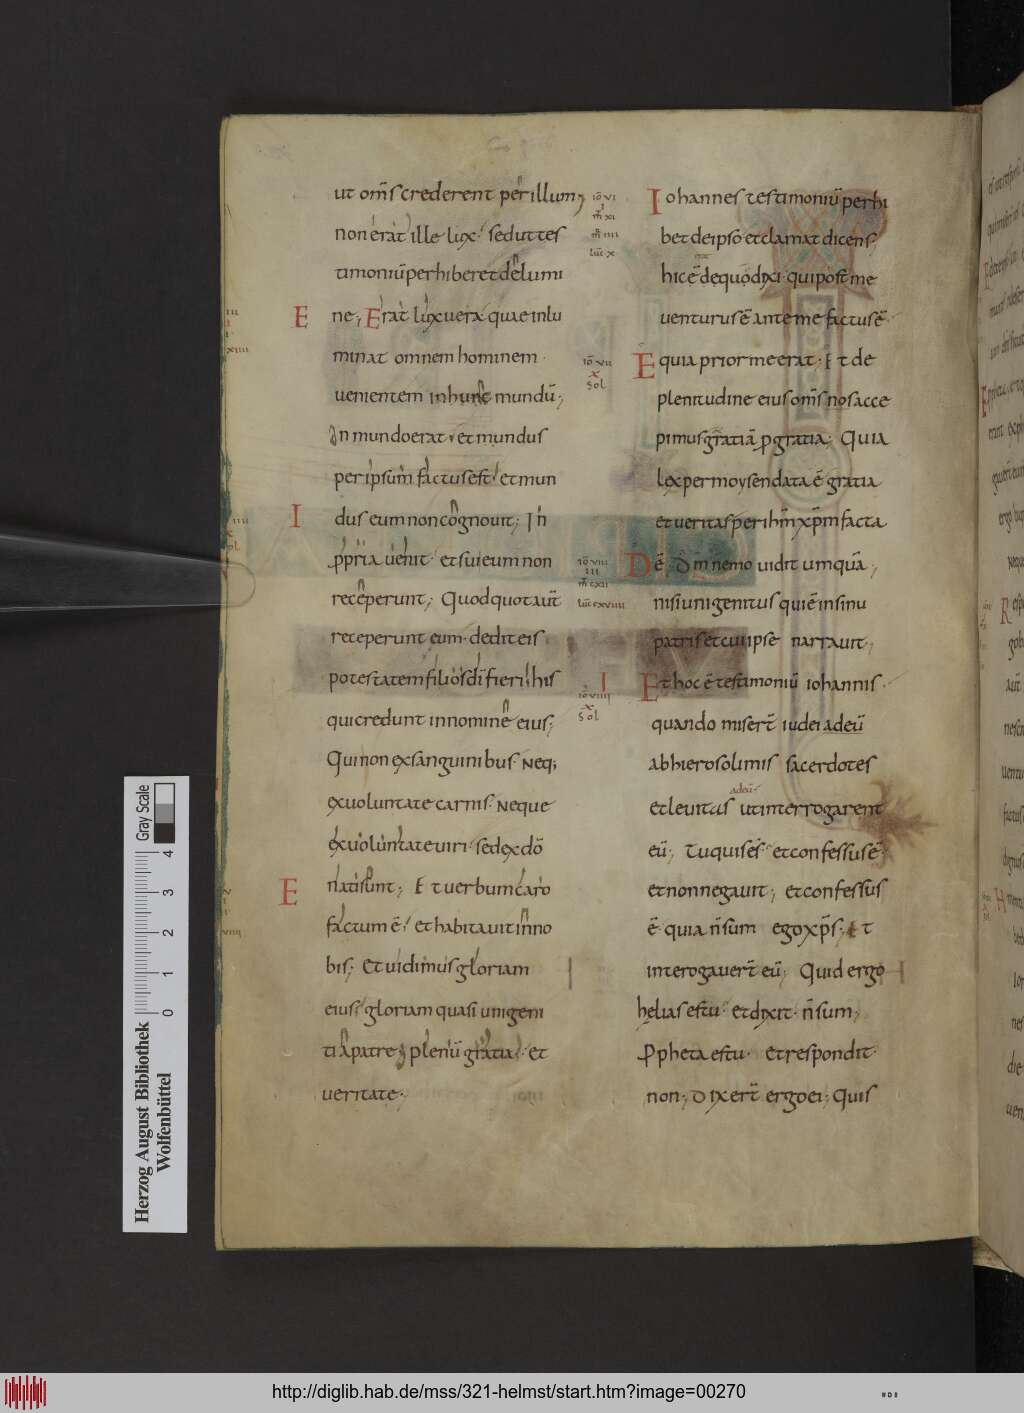 ut om̅s crederent per illum,
non erat ille lux. sed ut tes
timoniu̅ perhiberet de lumi
ne, Erat lux uera quae inlu
minat omnem hominem.
uenientem in hunc mundu̅;
In mundo erat. et mundus
per ipsum factus est. et mun
dus eum non cognouit; In
ppria uenit. et sui eum non
receperunt; Quodquot aut̅
receperunt eum. dedit eis
potestatem filios di̅ fieri. his
qui credunt in nomine eius;
Qui non ex sanguinibus. Neq;
ex uoluntate carnis. Neque
ex uoluntate uiri. sed ex do̅
nati sunt; Et uerbum caro
factum e̅. et habitauit in no
bis; Et uidimus gloriam
eius. gloriam quasi unigeni
ti a patre, plenu̅ gratia. et
ueritate.
Iohannes testimoniu̅ perhi
bet de ipso et clamat dicens;
hic e̅ de quo dixi. qui post me
uenturus e̅ ante me factus e̅.
quia prior me erat. Et de
plenitudine eius om̅s nos acce
pimus gratia̅ p gratia. Quia
lex per moysen data e̅ gratia
et ueritas per ih̅m xp̅m facta
e̅. Dm̅ nemo uidit umqua̅;
nisi unigenitus qui e̅ in sinu
patris et cui ipse narrauit;
Et hoc e̅ testimoniu̅ iohannis.
quando misert̅ iudei ad eu̅
ab hierosolimis sacerdotes
adeu̅.
et leuitas ut interrogarent
eu̅; Tu quis es. et confessus e̅
et non negauit; et confessus
e̅ quia n̅ sum ego xp̅s; Et
interogauert̅ eu̅; Quid ergo
helias es tu. et dixit. n̅ sum;
Ppheta es tu. et respondit.
non; Dixert̅ ergo ei; Quis
Herzog August Bibliothek
Wolfenbüttel
0 1 2 3 4
Gray Scale
http://diglib.hab.de/mss/321-helmst/start.htm?image=00270